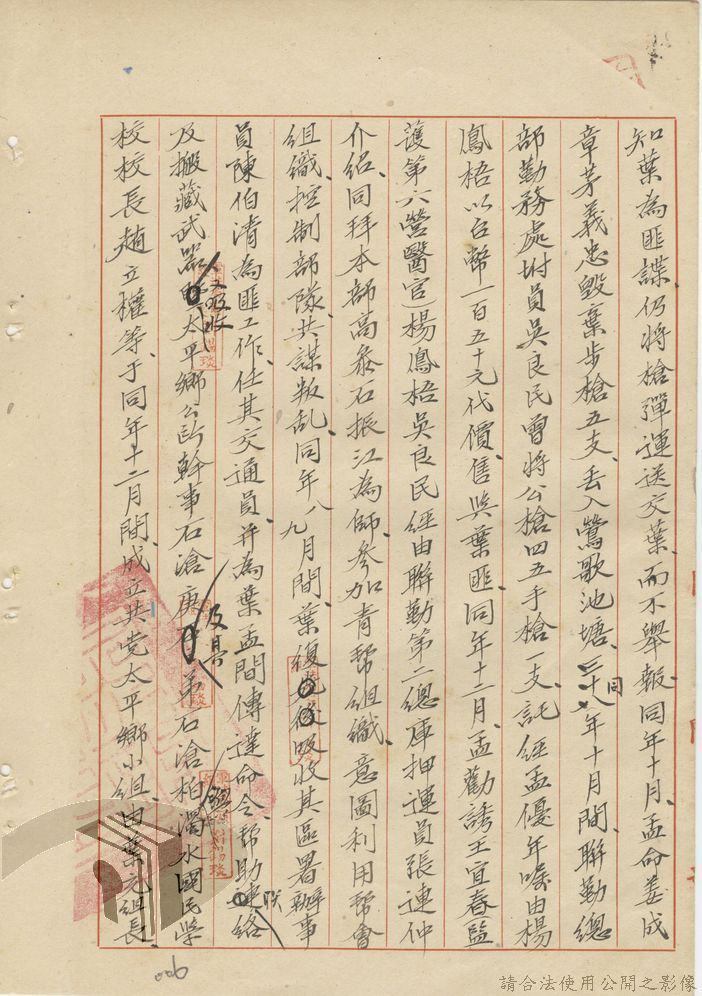 知葉為匪諜、仍將槍彈運送交葉、而不舉報、同年十月、孟命姜成
章茅義忠毀棄步槍五支、丟入鶯歌池塘、同年十月間、聯勤總
部勤務處附員吳良民曾將公槍四五手槍一支、託經孟優年囑由楊
鳳梧以台幣一百五十元代價、售與葉匪、同年十二月、孟勸誘王宜春(監
護第六營醫官)楊鳳梧吳良民經由聯勤第二總庫押運員張連仲
介紹、同拜本部高參石振江為師、參加青幫組織、意圖利用幫會
組織、控制部隊、共謀叛乱、同年八九月間、葉復吸收其區署辦事
員陳伯清為匪工作、任其交通員、并為葉孟間傳達命令、帮助聯絡
及搬藏武器、又吸收太平鄉公所幹事石滄庚及其弟石滄柏濁水國民学
校校長趙立權等、于同年十二月間、成立共党太平鄉小組、由葉充組長、
006
請合法使用公開之影像